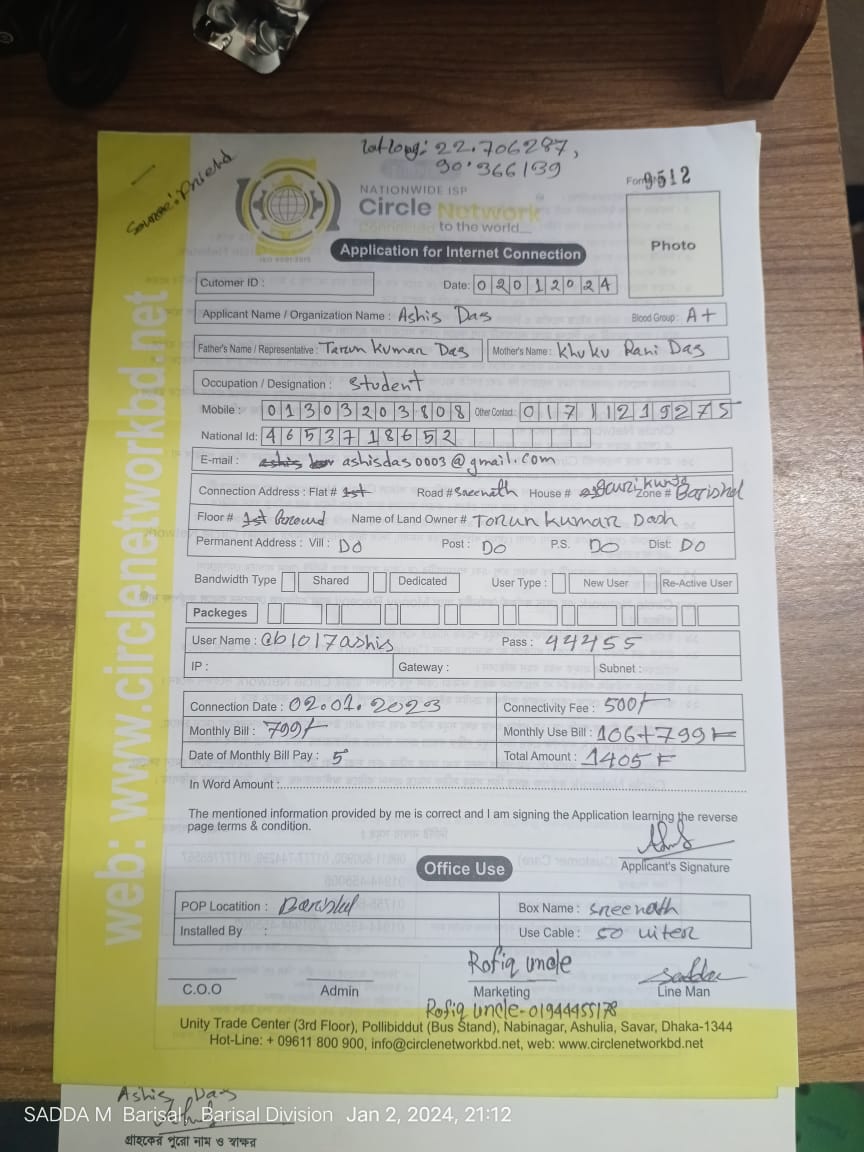 lat long: 22.706287,
90.366139
Source: Friend
Form 9512
NATIONWIDE ISP
Circle Network
Connected to the world...
ISO 9001:2015
Application for Internet Connection
Photo
Cutomer ID :
Date: 02012024
Applicant Name / Organization Name : Ashis Das Blood Group: A+
Father's Name / Representative : Tarun Kuman Das Mother's Name: Khuku Rani Das
Occupation / Designation : Student
Mobile : 01303203808 Other Contact: 01711219275
National Id: 4653718652
E-mail : ashisdas0003@gmail.com
Connection Address : Flat # 1st Road # Sreenath House # Gouri kunja Zone # Barishal
Floor # 1st Name of Land Owner # Torun Kumar Dash
Permanent Address : Vill : DO Post : DO P.S. DO Dist: DO
Bandwidth Type Shared Dedicated User Type : New User Re-Active User
Packeges
User Name : @b1017ashis Pass : 44455
IP : Gateway : Subnet :
Connection Date : 02.01.2023 Connectivity Fee : 500/-
Monthly Bill : 799/- Monthly Use Bill : 106+799/-
Date of Monthly Bill Pay : 5 Total Amount : 1405/-
In Word Amount :
The mentioned information provided by me is correct and I am signing the Application learning the reverse
page terms & condition.
Applicant's Signature
Office Use
POP Locatition : Barishal Box Name : Sreenath
Installed By : Use Cable : 50 miter
Rofiq uncle
C.O.O Admin Marketing Line Man
Rofiq uncle-01944455178
Unity Trade Center (3rd Floor), Pollibiddut (Bus Stand), Nabinagar, Ashulia, Savar, Dhaka-1344
Hot-Line: + 09611 800 900, info@circlenetworkbd.net, web: www.circlenetworkbd.net
web: www.circlenetworkbd.net
Ashis Das
SADDA M Barisal, Barisal Division Jan 2, 2024, 21:12
গ্রাহকের পুরো নাম ও স্বাক্ষর